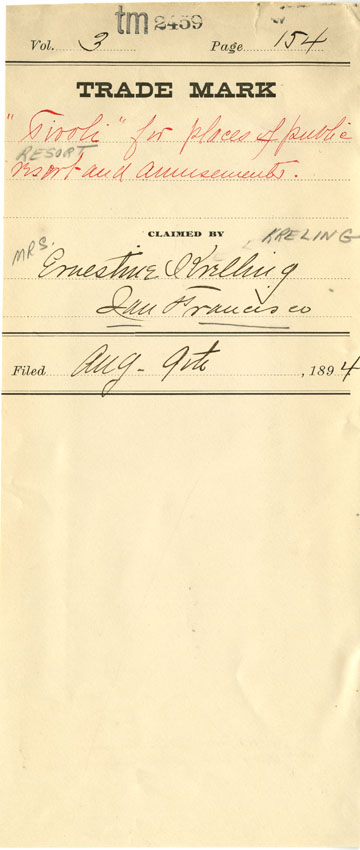 tm 2459
Vol. 3 Page 154
TRADE MARK
"Tivoli" for places of public
RESORT
resort and amusements.
CLAIMED BY
KRELING
MRS.
Ernestine Krelling
San Francisco
Filed Aug - 9th , 1894